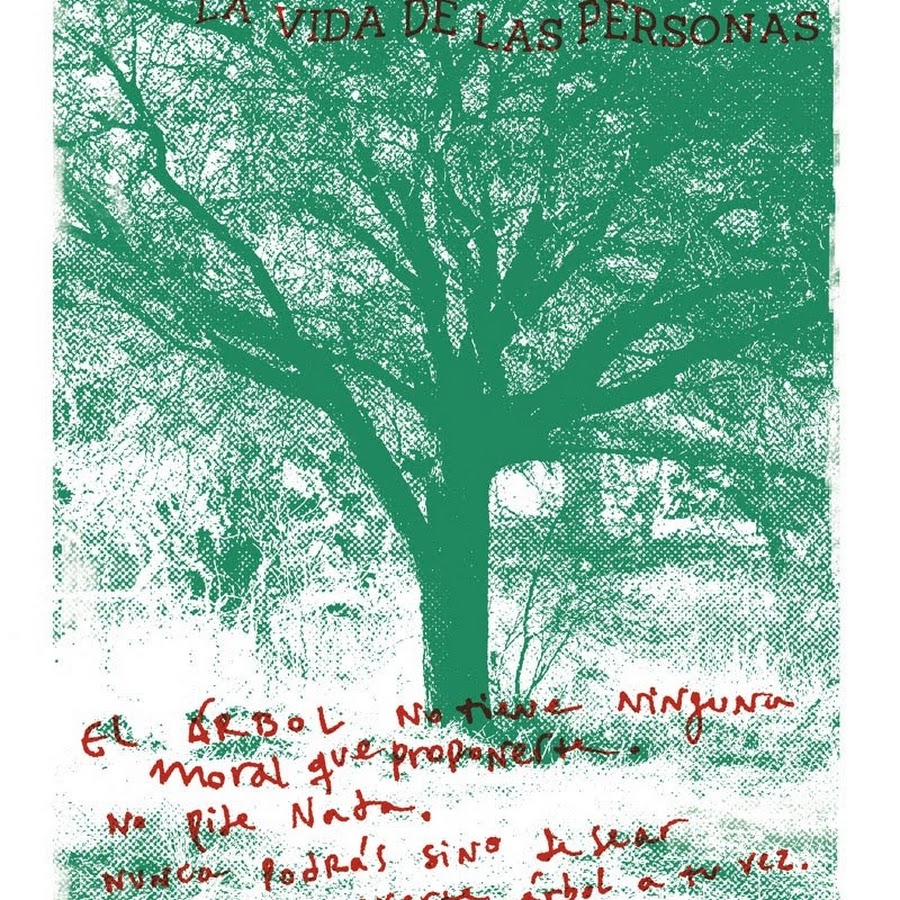 LA VIDA DE LAS PERSONAS
EL ÁRBOL No tiene NiNguNa
moral que proponerte.
No pide Nada.
NUNCa podrás siNo desear
árbol a tu vez.